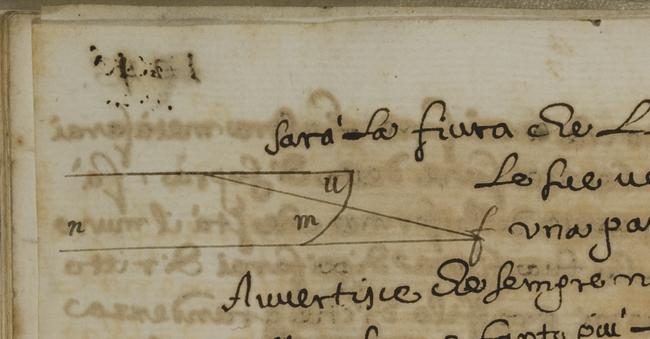 sarà la fiura che L
u
le sue ue
n m f una pa
Auuertisce che sempre n